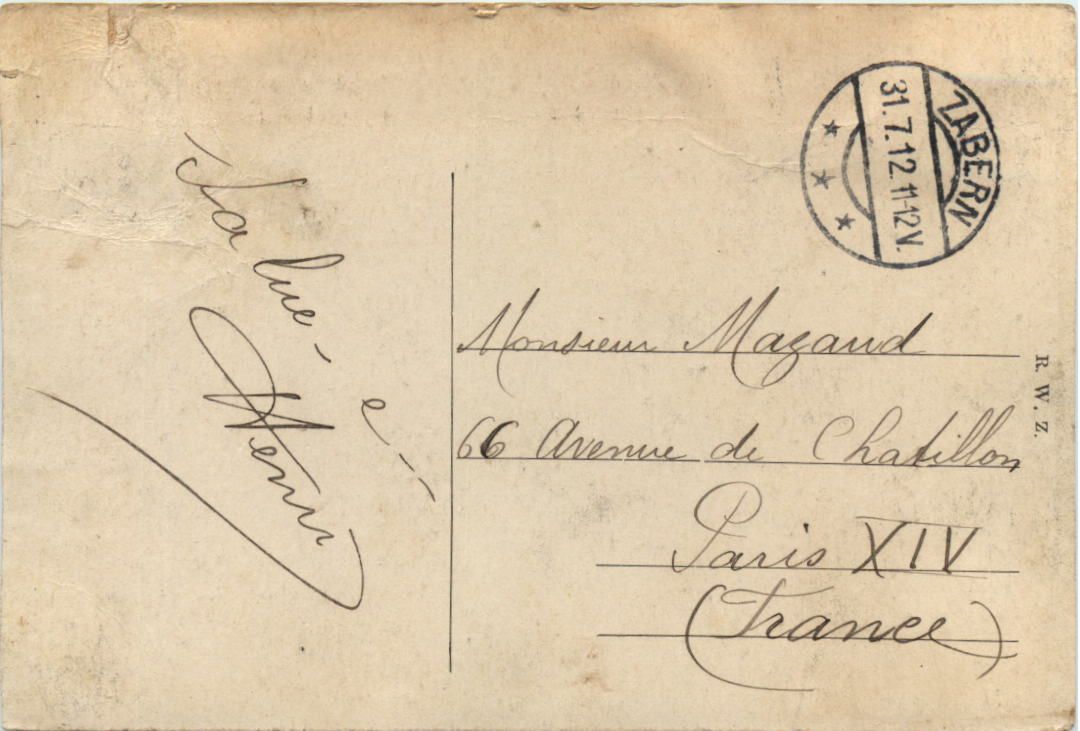 ZABERN
31.7.12.11-12V.
Monsieur Mazaud
66 Avenue de Chatillon
Paris XIV
(France)
R. W. Z.
Henri